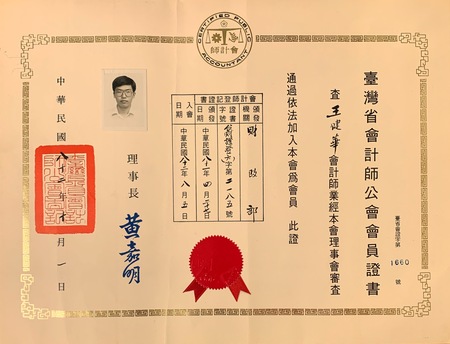 CERTIFIED PUBLIC
會計師
ACCOUNTANT
臺灣省會計師公會會員證書
臺省會證字第1660號
查王健華會計師業經本會理事會審查
通過依法加入本會為會員 此證
會計師登記證書
頒發機關
財政部
證書字號
字第二一八五號
頒發日期
中華民國八十二年四月 日
入會日期
中華民國八十二年八月五日
理事長 黃嘉明
中華民國八十二年十月一日